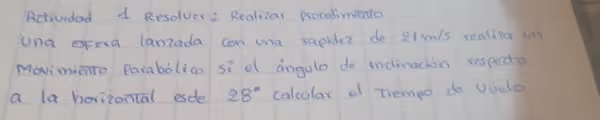 Actividad 1 Resolver: Realizar procedimiento
una esfera lanzada con una rapidez de 21 m/s realiza un
Movimiento Parabólico si el ángulo de inclinación respecto
a la horizontal esde 28° calcular el tiempo de vuelo